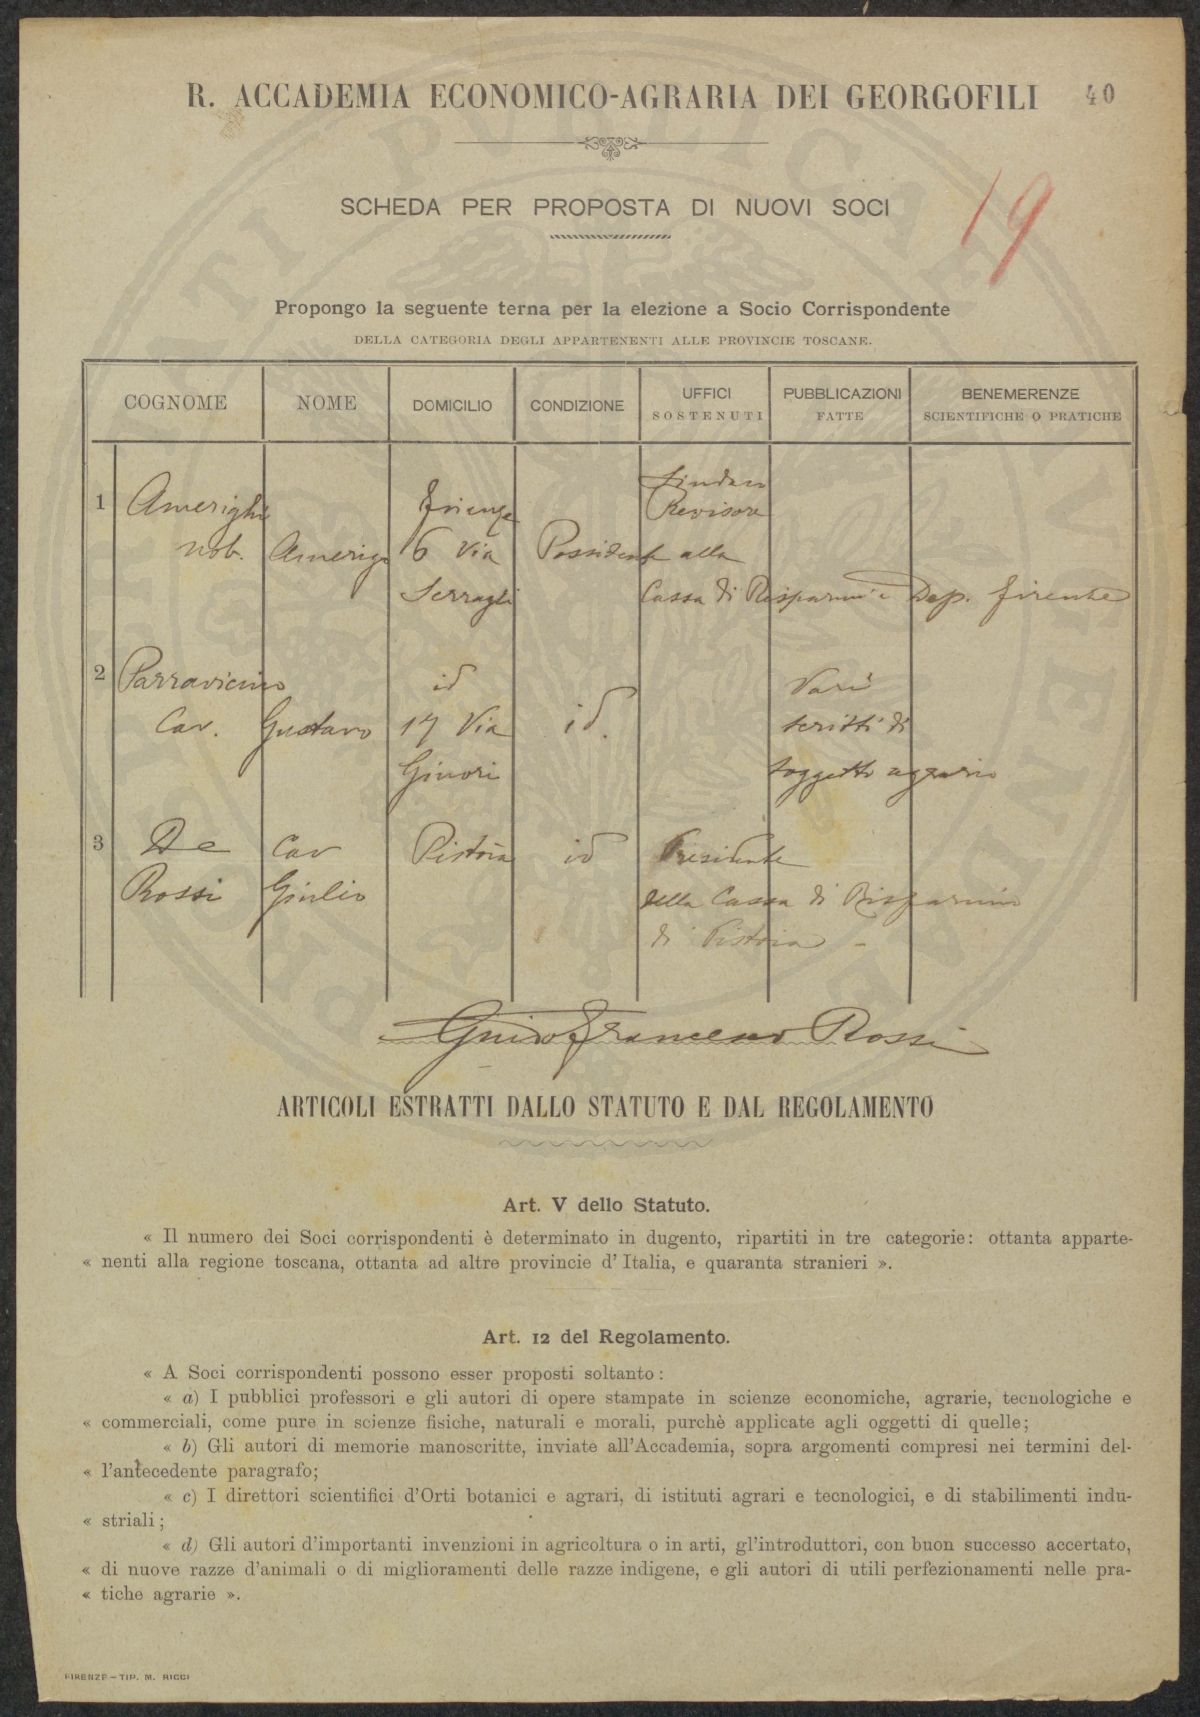 R. ACCADEMIA ECONOMICO-AGRARIA DEI GEORGOFILI 40
SCHEDA PER PROPOSTA DI NUOVI SOCI 19
Propongo la seguente terna per la elezione a Socio Corrispondente
DELLA CATEGORIA DEGLI APPARTENENTI ALLE PROVINCIE TOSCANE.
COGNOME NOME DOMICILIO CONDIZIONE UFFICI SOSTENUTI PUBBLICAZIONI FATTE BENEMERENZE SCIENTIFICHE O PRATICHE
Sindaco
1 Amerighi Firenze Revisore
nob. Amerigo 6 Via Possidente alla
Serragli Cassa di Risparmi e Dep. Firenze
2 Parravicino id Vari
Cav. Gustavo 17 Via id. scritti di
Ginori soggetto agrario
3 De Cav Pistoia id Presidente
Rossi Giulio della Cassa di Risparmio
di Pistoia
Guido Francesco Rossi
ARTICOLI ESTRATTI DALLO STATUTO E DAL REGOLAMENTO
Art. V dello Statuto.
« Il numero dei Soci corrispondenti è determinato in dugento, ripartiti in tre categorie: ottanta apparte-
« nenti alla regione toscana, ottanta ad altre provincie d'Italia, e quaranta stranieri ».
Art. 12 del Regolamento.
« A Soci corrispondenti possono esser proposti soltanto:
« a) I pubblici professori e gli autori di opere stampate in scienze economiche, agrarie, tecnologiche e
« commerciali, come pure in scienze fisiche, naturali e morali, purchè applicate agli oggetti di quelle;
« b) Gli autori di memorie manoscritte, inviate all'Accademia, sopra argomenti compresi nei termini del-
« l'antecedente paragrafo;
« c) I direttori scientifici d'Orti botanici e agrari, di istituti agrari e tecnologici, e di stabilimenti indu-
« striali;
« d) Gli autori d'importanti invenzioni in agricoltura o in arti, gl'introduttori, con buon successo accertato,
« di nuove razze d'animali o di miglioramenti delle razze indigene, e gli autori di utili perfezionamenti nelle pra-
« tiche agrarie ».
FIRENZE—TIP. M. RICCI